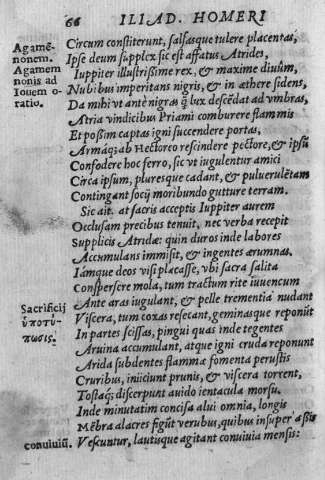 66 ILIAD. HOMERI
Circum constiterunt, salsasque tulere placentas,
Agamē- Ipse deum supplex sic est affatus Atrides,
nonem. Iuppiter illustrissime rex, & maxime diuûm,
Agamem
nonis ad Nubibus imperitans nigris, & in æthere sidens,
Iouem o- Da mihi vt ante nigras q̃ lux descēdat ad vmbras,
ratio. Atria vindicibus Priami comburere flammis
Et possim captas igni succendere portas,
Armáq; ab Hectoreo rescindere pectore, & ipsū
Confodere hoc ferro, sic vt iugulentur amici
Circa ipsum, pluresque cadant, & puluerulētam
Contingant socij moribundo gutture terram.
Sic ait. at sacris acceptis Iuppiter aurem
Occlusam precibus tenuit, nec verba recepit
Supplicis Atridæ: quin duros inde labores
Accumulans immisit, & ingentes ærumnas.
Iámque deos visi placasse, vbi sacra salita
Conspersere mola, tum tractum rite iuuencum
Sacrificij Ante aras iugulant, & pelle trementia nudant
ὑποτύ- Viscera, tum coxas resecant, geminasque reponūt
πωσις. In partes scissas, pingui quas inde tegentes
Aruina accumulant, atque igni cruda reponunt
Arida subdentes flammæ fomenta perustis
Cruribus, iniiciunt prunis, & viscera torrent,
Tostaq; discerpunt auido ientacula morsu.
Inde minutatim concisa alui omnia, longis
Mēbra alacres figūt verubus, quibus insuper assis
conuiuiū. Vescuntur, lautisque agitant conuiuia mensis: